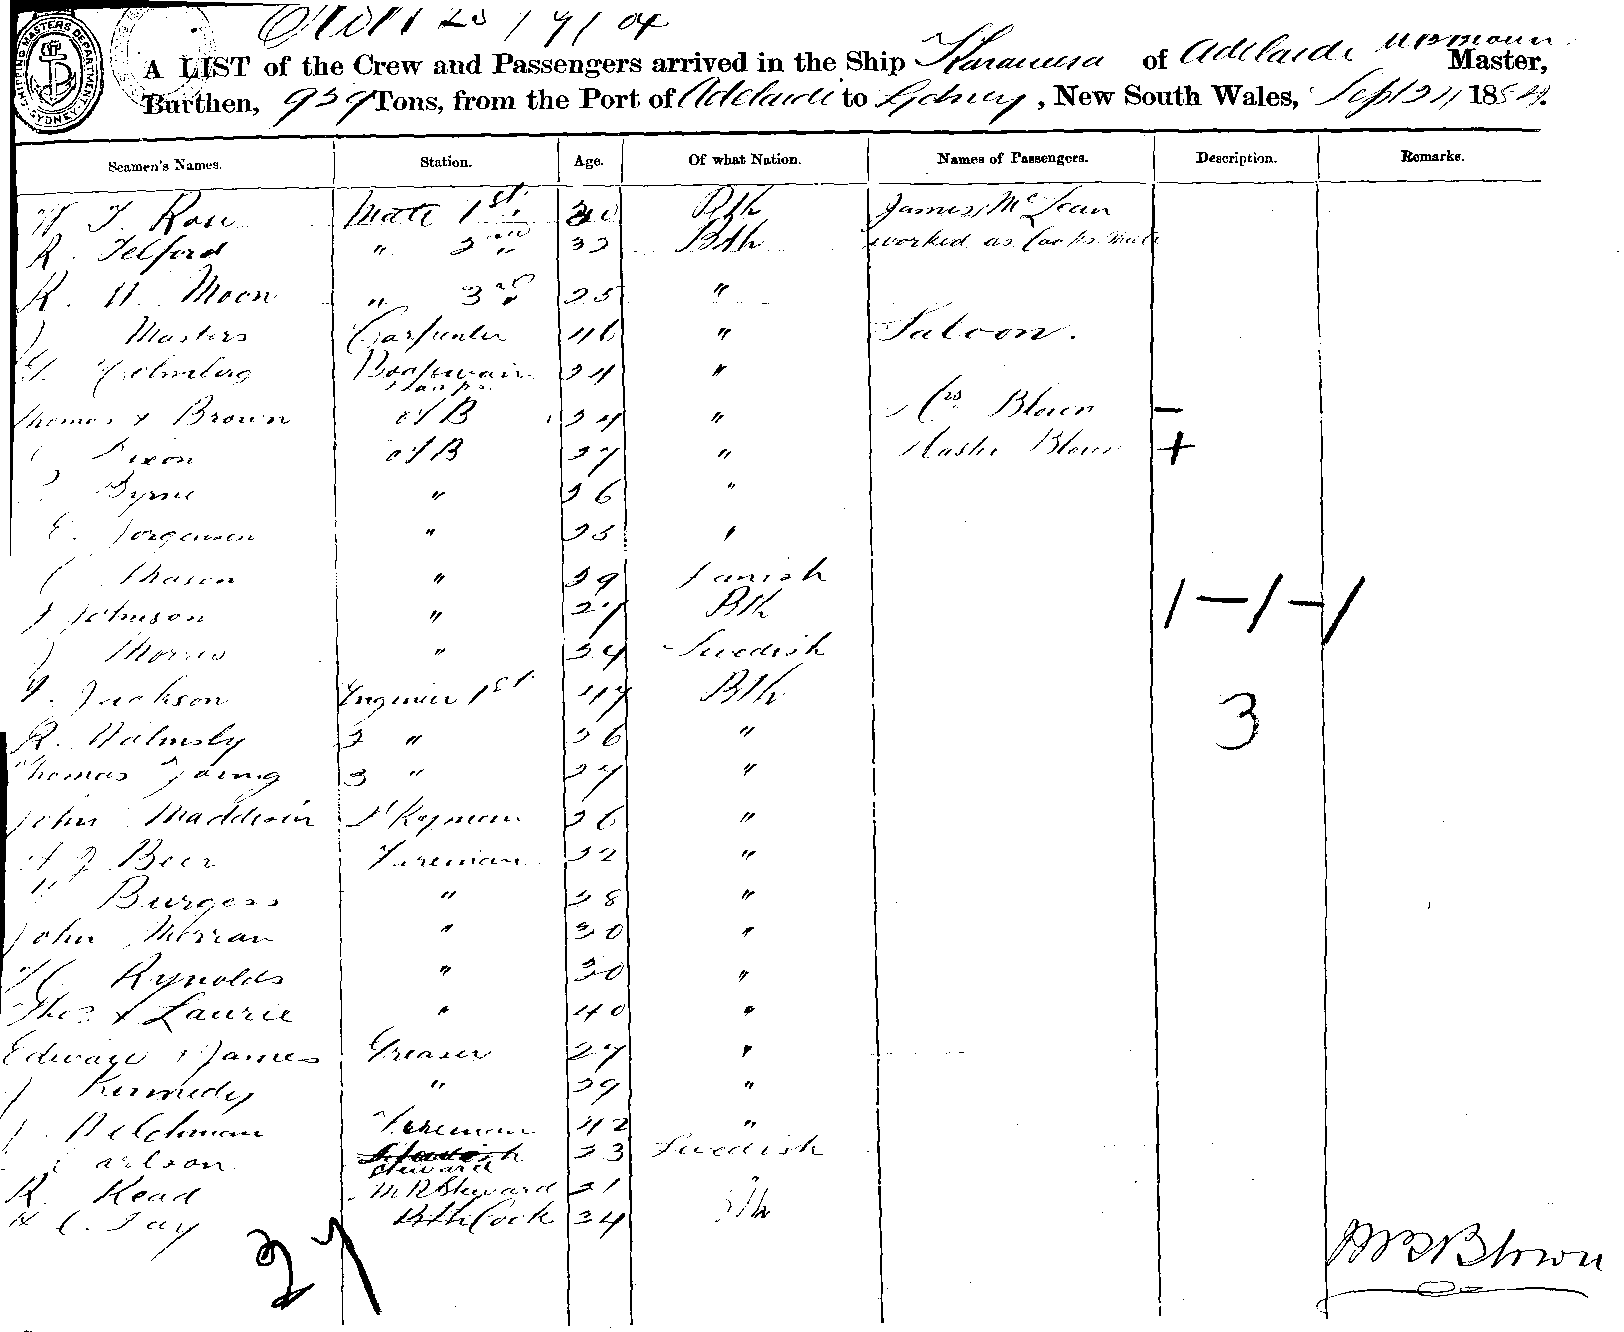 A LIST of the Crew and Passengers arrived in the Ship of Adelaide Master,
Burthen, 939 Tons, from the Port of Adelaide to Sydney, New South Wales, Sept
Seamen's Names. Station. Age. Of what Nation. Names of Passengers. Description. Remarks.
W T Rose Mate 1st Bth James McLean
R. Telford " 2nd 32 Bth worked as Cooks mate
R. W. Moon " 3rd 25 "
J Masters Carpenter 46 " Saloon.
Holmberg Boatswain 24 "
Thomas x Brown AB 24 " Mrs Blown —
Dixon AB 27 " Master Blown +
Byrne " 26 "
E. Jorgensen " 25 "
" 29 Danish
J Johnson " 27 Bth
J Morris " 24 Swedish
Jackson Enginier 1st 47 Bth
R. Walmsly 2 " 36 " 3
Thomas Young 3 " 27 "
John Maddison Dkeyman 26 "
A J Beer Fireman 32 "
Burgess " 28 "
John Merran " 30 "
H Rynolds " 30 "
Thos x Laurie " 40 "
Edward x James Greaser 27 "
J Kennedy " 39 "
J. Fireman 42 "
Carlson Steward 33 Swedish
R. Read Steward 21
H C. Jay Bth Cook 34 Bth
27
Blown